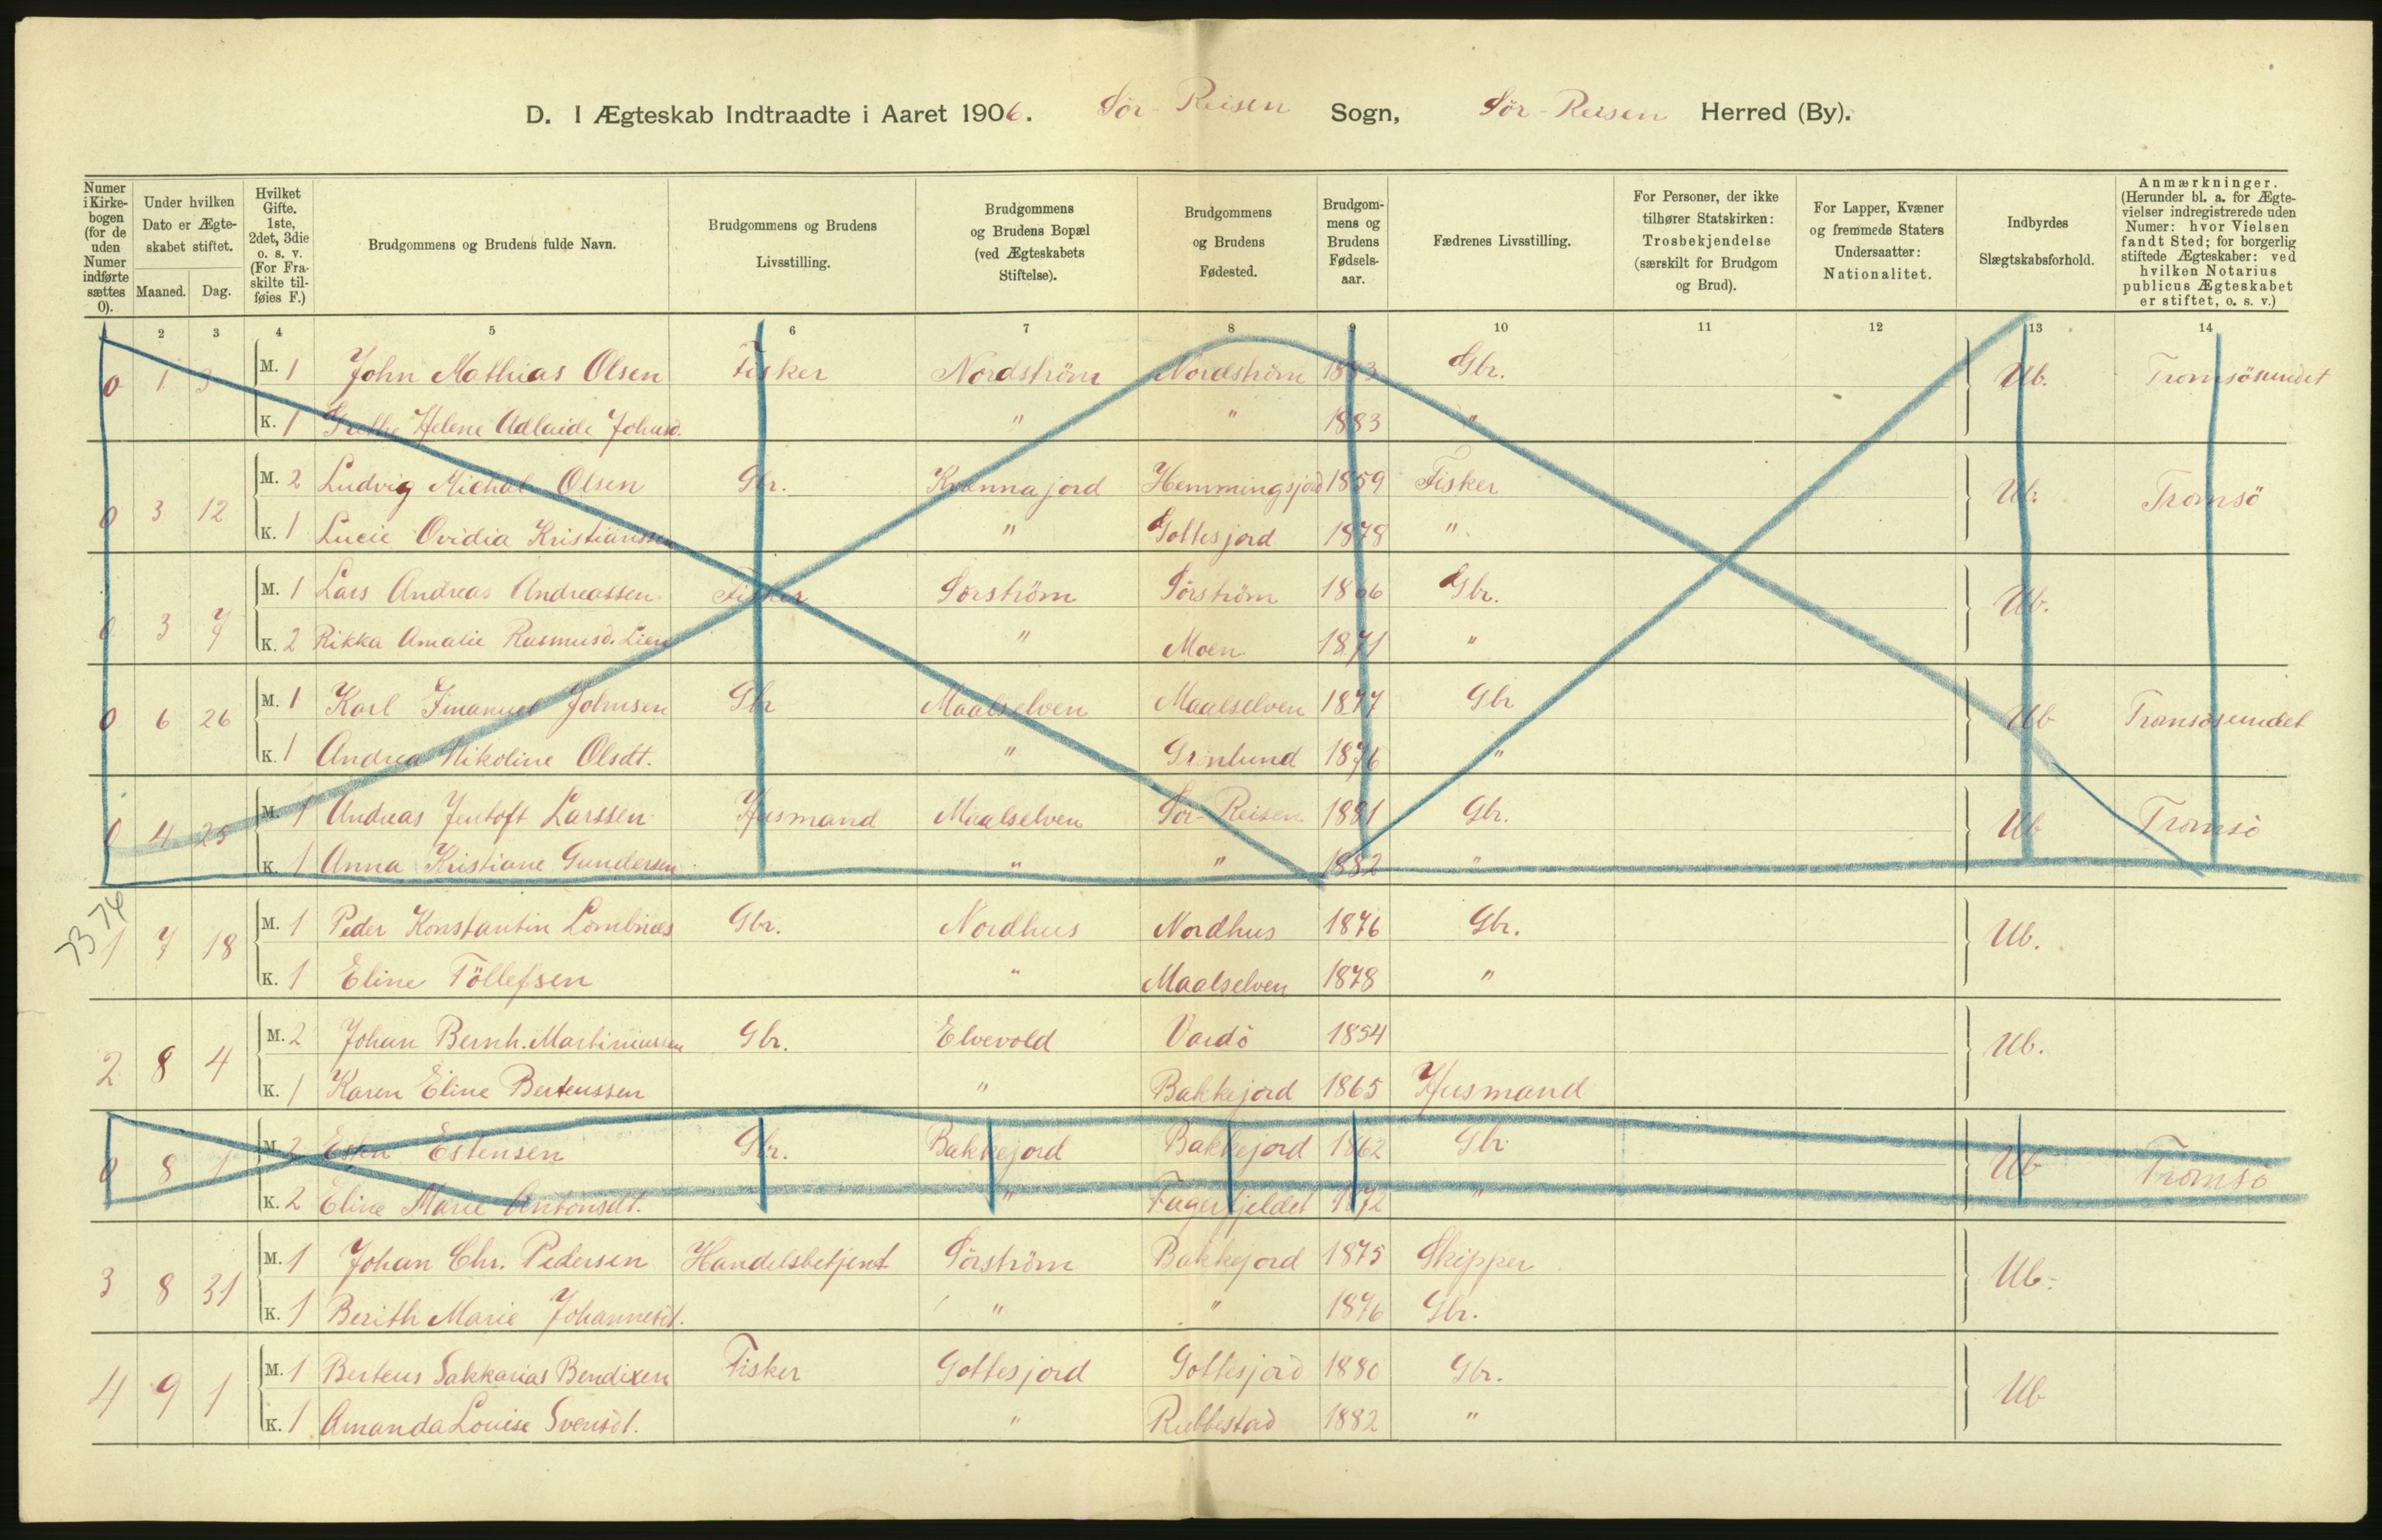 D. I Ægteskab Indtraadte i Aaret 1906. Sör-Reisen Sogn, Sör-Reisen Herred (By).
Numer i Kirkebogen (for de uden Numer indførte sættes 0).
Under hvilken Dato er Ægteskabet stiftet.
Maaned. Dag.
Hvilket Gifte. 1ste, 2det, 3die o. s. v. (For Fraskilte tilføies F.)
Brudgommens og Brudens fulde Navn.
Brudgommens og Brudens Livsstilling.
Brudgommens og Brudens Bopæl (ved Ægteskabets Stiftelse).
Brudgommens og Brudens Fødested.
Brudgommens og Brudens Fødselsaar.
Fædrenes Livsstilling.
For Personer, der ikke tilhører Statskirken: Trosbekjendelse (særskilt for Brudgom og Brud).
For Lapper, Kvæner og fremmede Staters Undersaatter: Nationalitet.
Indbyrdes Slægtskabsforhold.
Anmærkninger. (Herunder bl. a. for Ægtevielser indregistrerede uden Numer: hvor Vielsen fandt Sted; for borgerlig stiftede Ægteskaber: ved hvilken Notarius publicus Ægteskabet er stiftet, o. s. v.)
2 3 4 5 6 7 8 9 10 11 12 13 14
0 1 3 M. 1 John Mathias Olsen Fisker Nordström Nordström 1883 Gbr. Ub. Tromsösundet
K. 1 Helene Adlaide Johnsd. " " 1883 "
0 3 12 M. 2 Ludvig Michal Olsen Gbr. Kvannajord Hemmingsjord 1859 Fisker Ub. Tromsö
K. 1 Lucie Ovidia Kristianssen " Gottesjord 1878 "
0 3 7 M. 1 Lars Andreas Andreassen Fisker Sörström Sörström 1866 Gbr. Ub.
K. 2 Rikka Amalie Rasmusd. Lien " Moen 1871 "
0 6 26 M. 1 Karl Imanuel Johnsen Gbr Maalselven Maalselven 1877 Gbr Ub Tromsösundet
K. 1 Andrea Nikoline Olsdt. " Grönlund 1876 "
0 4 25 M. 1 Andreas Jentoft Larssen Husmand Maalselven Sör-Reisen 1881 Gbr. Ub Tromsö
K. 1 Anna Kristiane Gundersen " " 1882 "
73 74
1 7 18 M. 1 Peder Konstantin Lombnæs Gbr. Nordhus Nordhus 1876 Gbr. Ub.
K. 1 Eline Töllefsen " Maalselven 1878 "
2 8 4 M. 2 Johan Bernh. Martiniussen Gbr. Elvevold Vardö 1854 Ub.
K. 1 Karen Eline Berteussen " Bakkejord 1865 Husmand
0 8 1 M. 2 Esten Estensen Gbr. Bakkejord Bakkejord 1862 Gbr Ub Tromsö
K. 2 Eline Marie Antonsdt. " Fagerfjeldet 1872 "
3 8 31 M. 1 Johan Chr. Pedersen Handelsbetjent Sörström Bakkejord 1875 Skipper Ub.
K. 1 Berith Marie Johannesdt. " " 1876 Gbr.
4 9 1 M. 1 Berteus Sakkarias Bendixen Fisker Gottesjord Gottesjord 1880 Gbr. Ub
K. 1 Amanda Louise Svensdt. " Rubbestad 1882 "